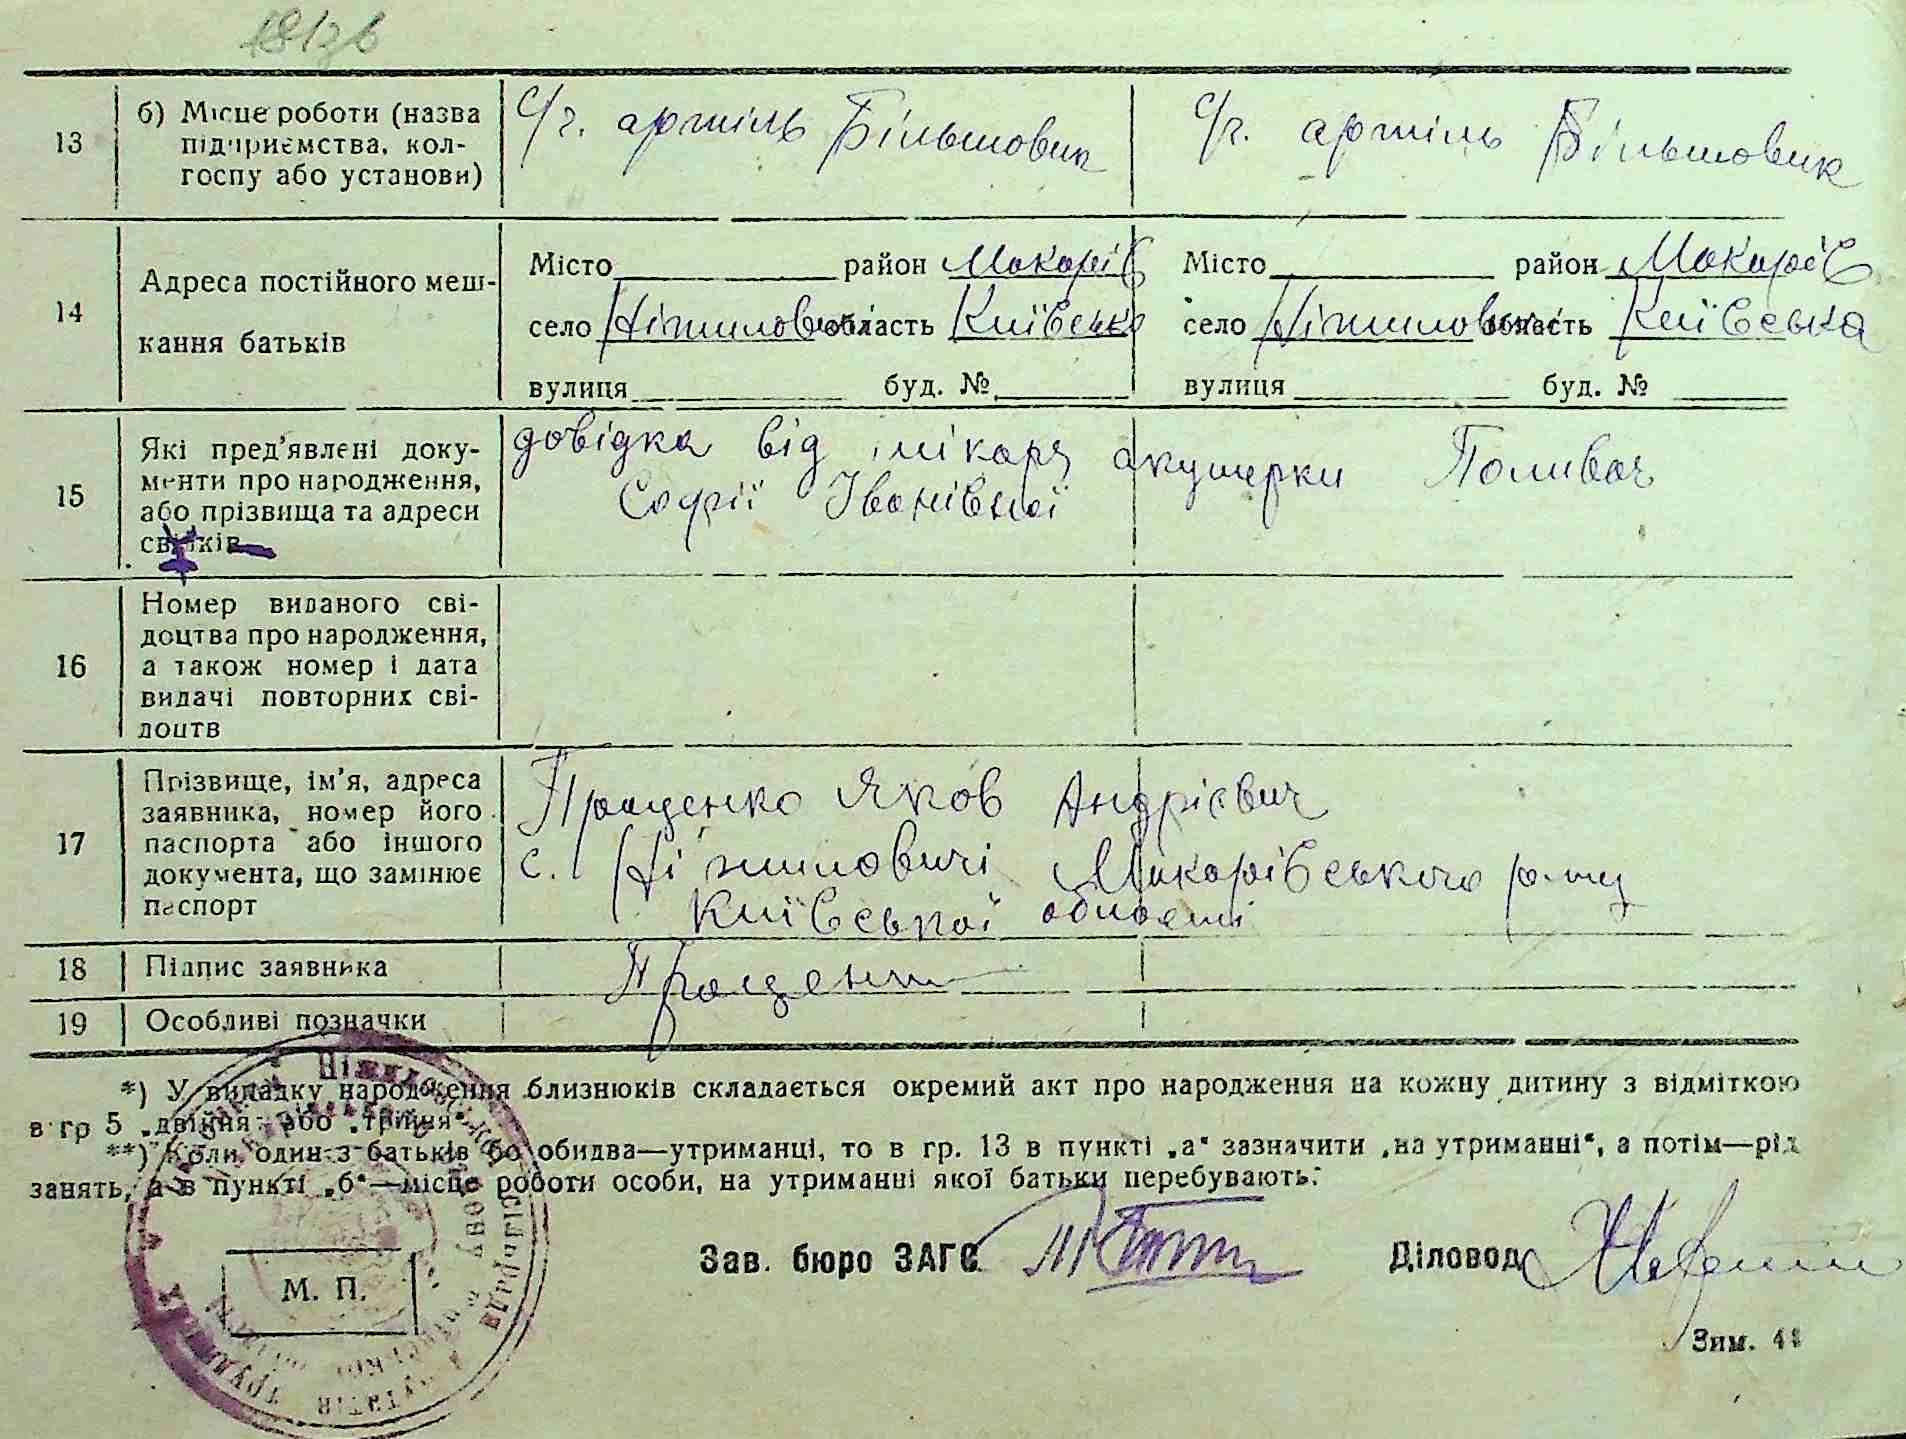 13
б) Місце роботи (назва
підприємства, кол-
госпу або установи)
с/г. артіль Більшовик
с/г. артіль Більшовик
14
Адреса постійного меш-
кання батьків
Місто район Макарів
село Ніжиловичі область Київська
вулиця буд. №
Місто район Макарів
село Ніжиловичі область Київська
вулиця буд. №
15
Які пред'явлені доку-
менти про народження,
або прізвища та адреси
свідків
довідка від лікаря акушерки Поливач
Софії Іванівної
16
Номер виданого сві-
доцтва про народження,
а також номер і дата
видачі повторних сві-
доцтв
17
Прізвище, ім'я, адреса
заявника, номер його
паспорта або іншого
документа, що замінює
паспорт
Проценко Яков Андрієвич
с. Ніжиловичі Макарівського р-ну
Київської області
18
Підпис заявника
Проценко
19
Особливі позначки
*) У випадку народження близнюків складається окремий акт про народження на кожну дитину з відміткою
в гр 5 „двійня“ або „трійня“.
**) Коли один з батьків бо обидва—утриманці, то в гр. 13 в пункті „а“ зазначити „на утриманні“, а потім—рід
занять, а в пункті „б“—місце роботи особи, на утриманні якої батьки перебувають.
Зав. бюро ЗАГС
Діловод
М. П.
Зим.